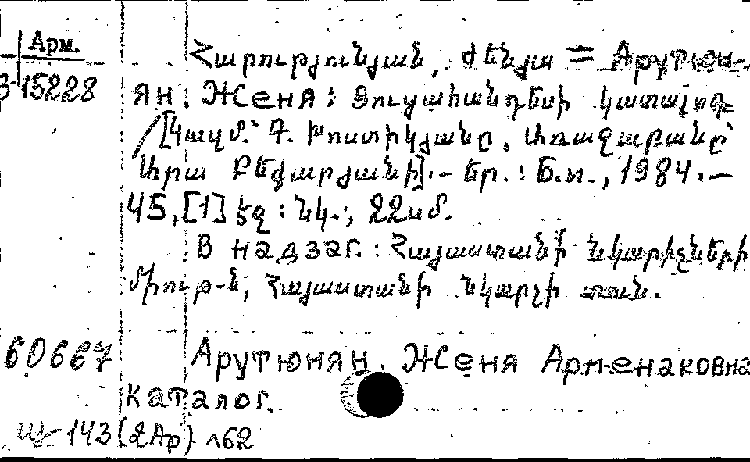 Арм.
Հարությունյան, Ժենյա = Арутюн-
3-15228
ян. Женя: Ցուցահանդեսի կատալոգ
/[Կազմ.՝ Գ. Խոստիկյանը, Առաջաբանը՝
Արա Բեքարյանի].- Եր.: Б.и., 1984.-
45,[1] էջ: նկ.; 22սմ.
В надзаг.: Հայաստանի նկարիչների
միութ-ն, Հայաստանի նկարչի տուն.
60667 Арутюнян. Женя Арменаковна
каталог.
143(2Ар) л62